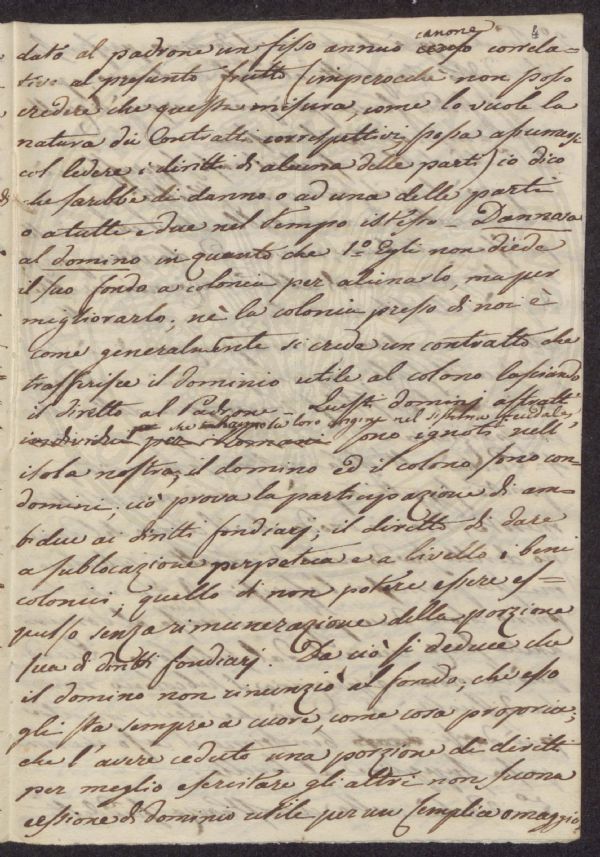 4
canone
dato al padrone un fisso annuo censo correla=
tivo al presunto frutto (imperocchè non posso
credere che questa misura, come lo vuole la
natura dei Contratti corrispettivi, possa assumersi
col ledere i diritti di alcuna delle parti) io dico
che sarebbe di danno o ad una delle parti
o a tutte e due nel tempo istesso – Dannosa
al domino in quanto che 1.º Egli non diede
il suo fondo a colonia per alienarlo, ma per
migliorarlo; nè la colonia presso di noi è
come generalmente si crede un contratto che
trasferisce il dominio utile al colono lasciando
il diretto al Padrone – Questi dominj astratti
che hanno la loro origine nel sistema feudale,
individui per i Romani sono ignoti nell'
isola nostra; il domino ed il colono sono con=
domini; ciò prova la participazione di am=
bidue ai diritti fondiarj; il diritto di dare
a sublocazione perpetua e a livello i beni
colonici, quello di non potere essere es=
pulso senza rimunerazione della porzione
sua di diritti fondiarj. Da ciò si deduce che
il domino non rinunziò al fondo, che esso
gli sta sempre a cuore, come cosa propria;
che l'avere ceduto una porzione di diritti
per meglio esercitare gli altri non suona
cessione di dominio utile per un semplice omaggio